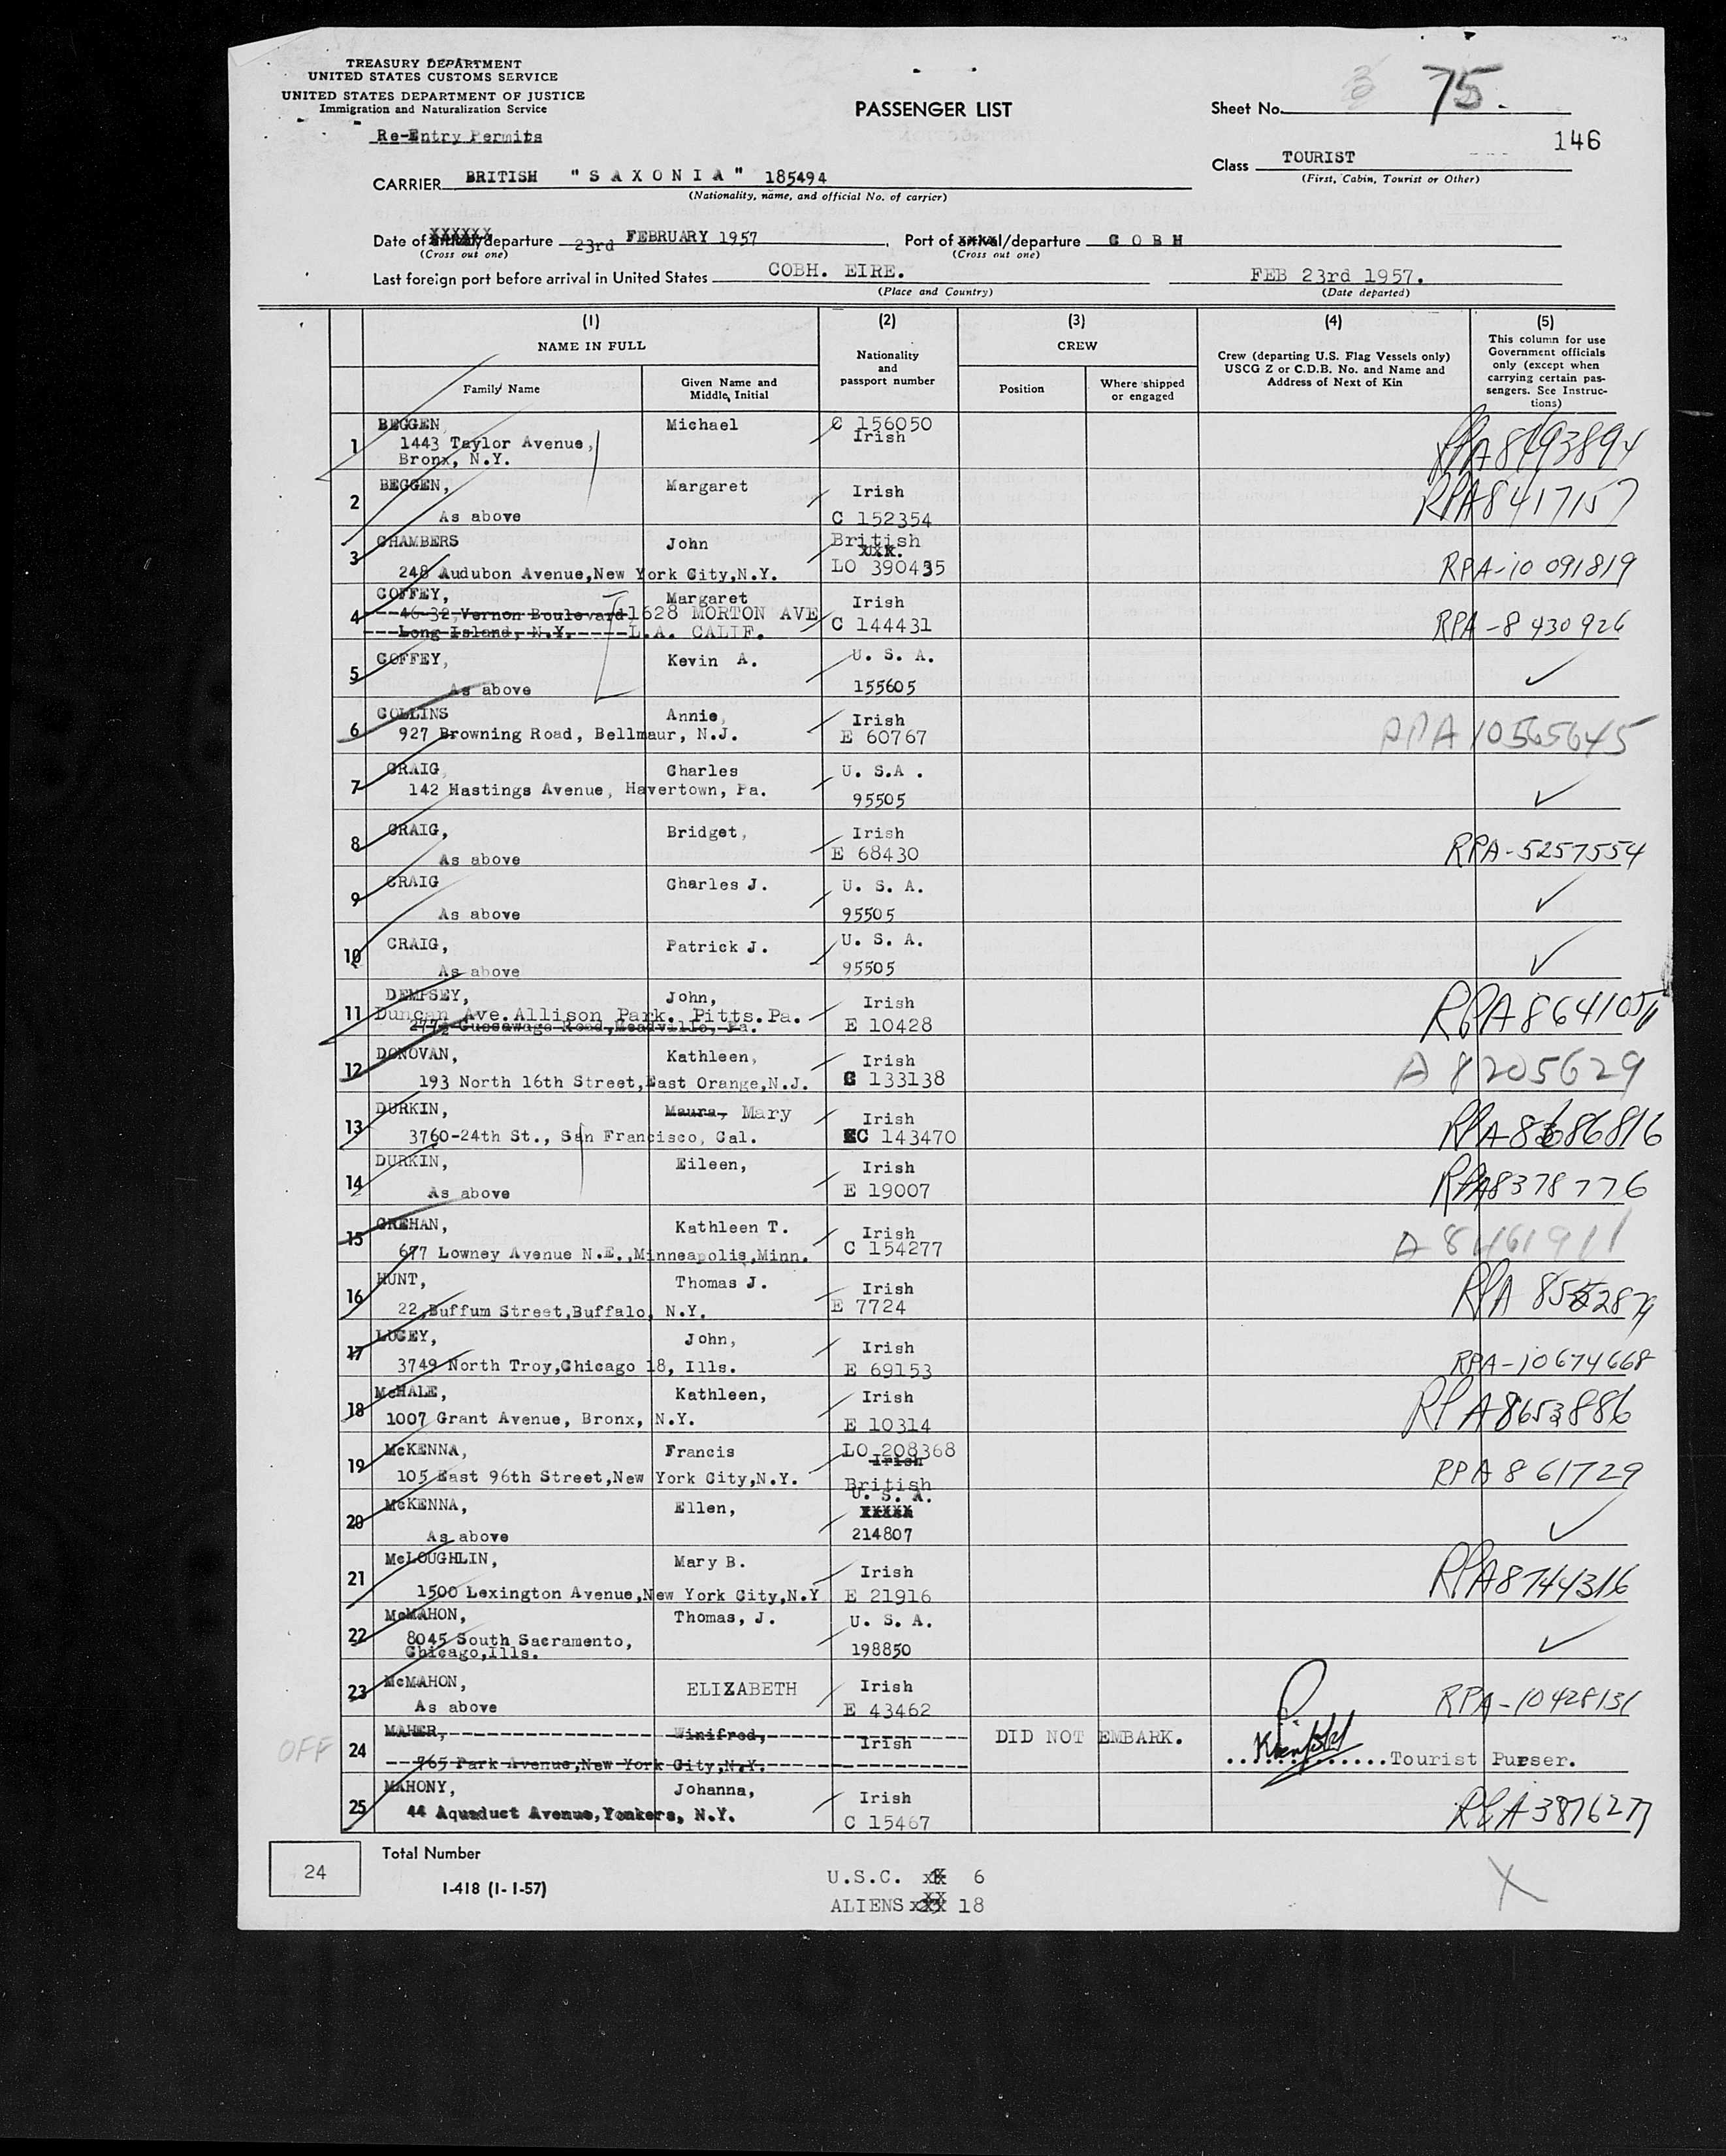 TREASURY DEPARTMENT
UNITED STATES CUSTOMS SERVICE
UNITED STATES DEPARTMENT OF JUSTICE
Immigration and Naturalization Service
Re-Entry Permits
PASSENGER LIST
Sheet No. 75
146
Class TOURIST
(First, Cabin, Tourist or Other)
CARRIER BRITISH "S A X O N I A" 185494
(Nationality, name, and official No. of carrier)
Date of arrival/departure 23rd FEBRUARY 1957, Port of arrival/departure C O B H
(Cross out one) (Cross out one)
Last foreign port before arrival in United States COBH. EIRE. FEB 23rd 1957.
(Place and Country) (Date departed)
(1) (2) (3) (4) (5)
NAME IN FULL
Family Name
Given Name and Middle Initial
Nationality and passport number
CREW
Position
Where shipped or engaged
Crew (departing U.S. Flag Vessels only)
USCG Z or C.D.B. No. and Name and
Address of Next of Kin
This column for use
Government officials
only (except when
carrying certain pas-
sengers. See Instruc-
tions)
1 BEGGEN, Michael C 156050
1443 Taylor Avenue, Irish
Bronx, N.Y.
2 BEGGEN, Margaret Irish RPA8417157
As above C 152354
3 CHAMBERS John British
248 Audubon Avenue,New York City,N.Y. LO 390435 RPA-10 091819
4 COFFEY, Margaret Irish
46-32,Vernon Boulevard 1628 MORTON AVE C 144431 RPA-8 430 926
Long Island, N.Y. L.A. CALIF.
5 COFFEY, Kevin A. U. S. A. ✓
As above 155605
6 COLLINS Annie, Irish RPA 10565645
927 Browning Road, Bellmaur, N.J. E 60767
7 CRAIG, Charles U. S.A . ✓
142 Hastings Avenue, Havertown, Pa. 95505
8 CRAIG, Bridget, Irish RPA-5257554
As above E 68430
9 CRAIG Charles J. U. S. A. ✓
As above 95505
10 CRAIG, Patrick J. U. S. A. ✓
As above 95505
11 DEMPSEY, John, Irish
Duncan Ave.Allison Park. Pitts.Pa. E 10428
12 DONOVAN, Kathleen, Irish A 8205629
193 North 16th Street,East Orange,N.J. C 133138
13 DURKIN, Maura, Mary Irish
3760-24th St., San Francisco, Cal. C 143470
14 DURKIN, Eileen, Irish RPA8378776
As above E 19007
15 GREHAN, Kathleen T. Irish A 8461911
677 Lowney Avenue N.E.,Minneapolis,Minn. C 154277
16 HUNT, Thomas J. Irish
22,Buffum Street,Buffalo, N.Y. E 7724
17 LUCEY, John, Irish RPA-10674668
3749 North Troy,Chicago 18, Ills. E 69153
18 McHALE, Kathleen, Irish RPA8653886
1007 Grant Avenue, Bronx, N.Y. E 10314
19 McKENNA, Francis LO 208368
Irish
105 East 96th Street,New York City,N.Y. British RPA 861729
20 McKENNA, Ellen, U. S. A. ✓
As above 214807
21 McLOUGHLIN, Mary B. Irish RPA8744316
1500 Lexington Avenue,New York City,N.Y E 21916
22 McMAHON, Thomas, J. U. S. A. ✓
8045 South Sacramento, 198850
Chicago,Ills.
23 McMAHON, ELIZABETH Irish RPA-10428131
As above E 43462
OFF 24 MAHER, Winifred, Irish DID NOT EMBARK. Tourist Purser.
765 Park Avenue,New York City,N.Y.
25 MAHONY, Johanna, Irish
44 Aquaduct Avenue,Yonkers, N.Y. C 15467
24 Total Number
I-418 (1-1-57)
U.S.C. 6
ALIENS 18
X